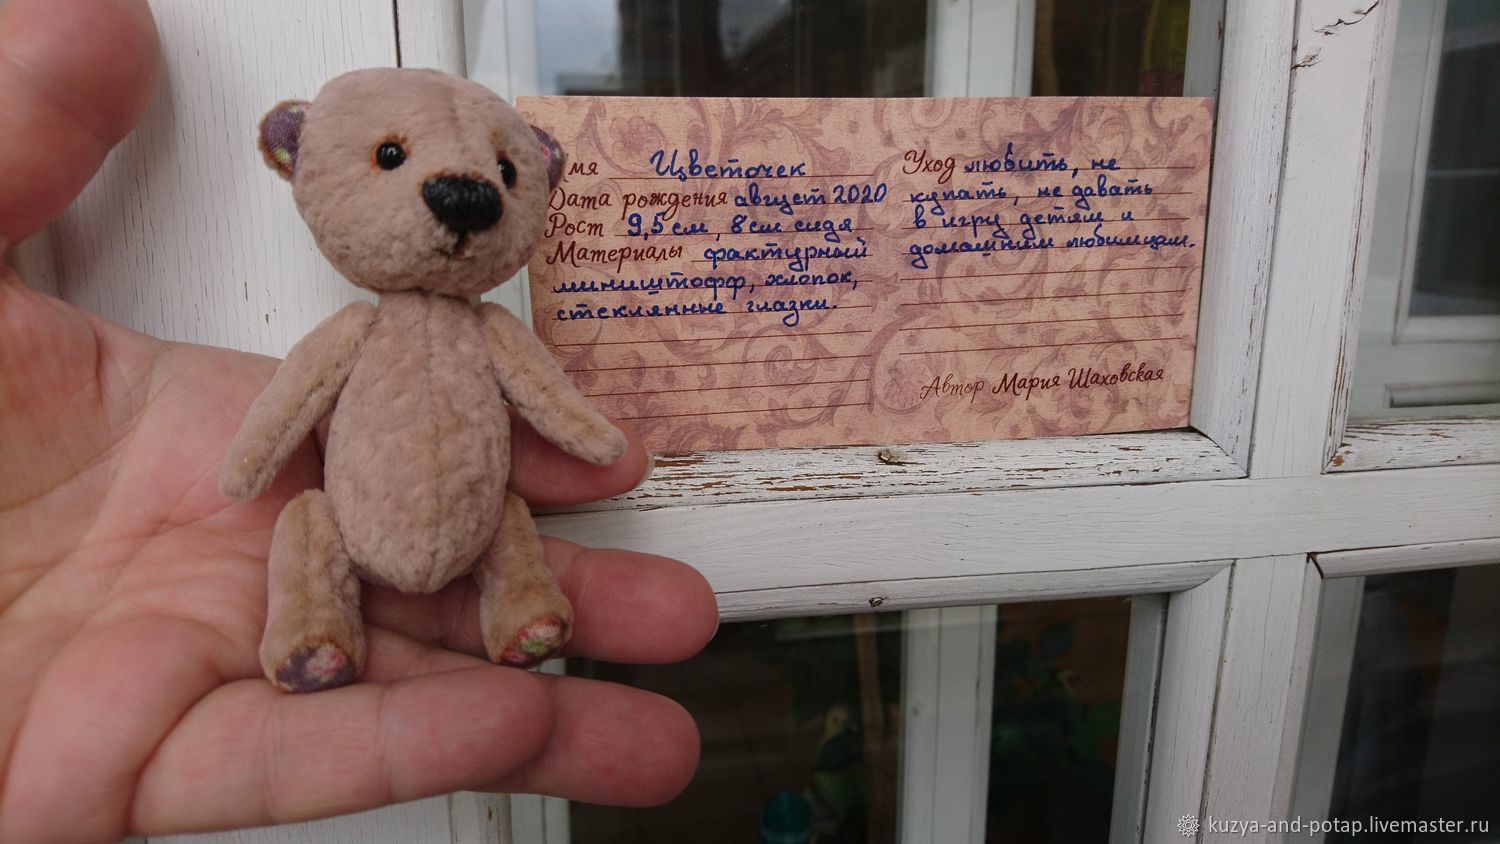 мя Цветочек
Дата рождения август 2020
Рост 9,5 см, 8 см сидя
Материалы фактурный
миништофф, хлопок,
стеклянные глазки.
Уход любить, не
купать, не давать
в игру детям и
домашним любимцам.
Автор Мария Шаховская
kuzya-and-potap.livemaster.ru